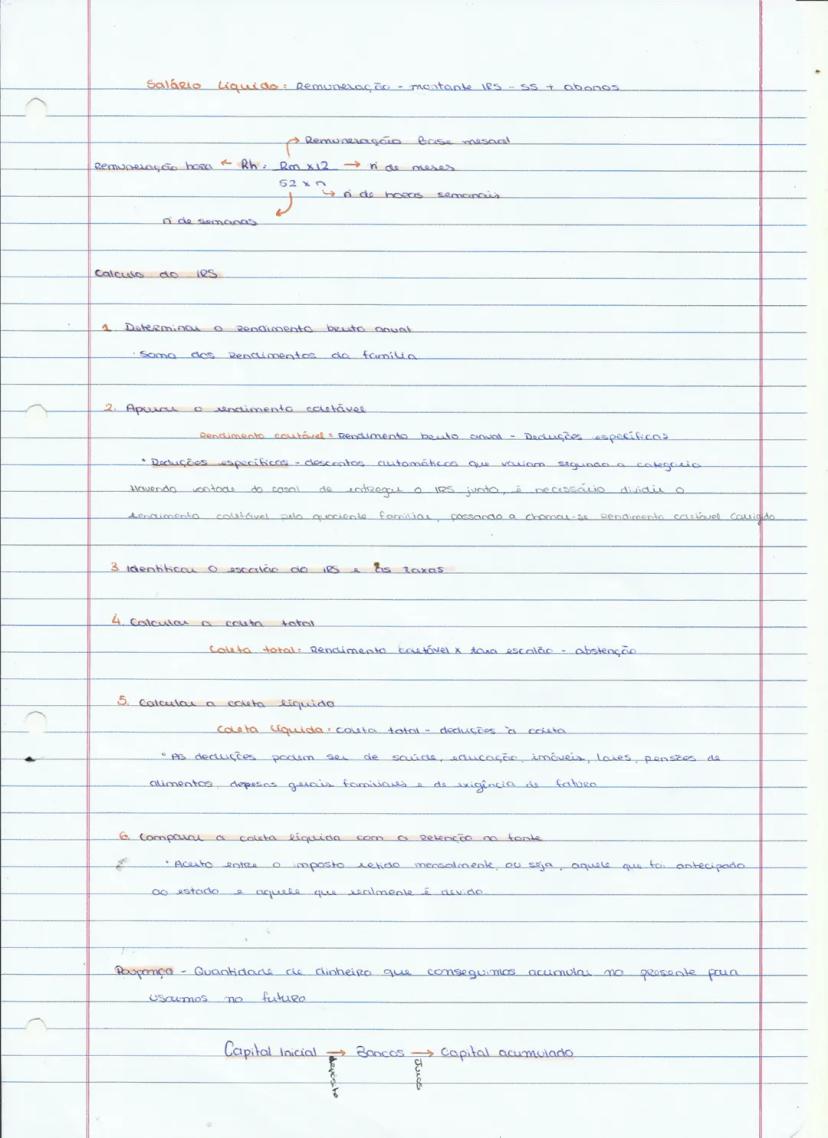 Salário líquido: Remuneração - montante IRS - SS + abonos
Remuneração Base mensal
Remuneração hora ← Rh = Rm x12 → nº de meses
52 x n
→ nº de horas semanais
nº de semanas
Calculo do IRS
1. Determinar o rendimento bruto anual
· Soma dos Rendimentos da família
2. Apurar o rendimento coletável
Rendimento coletável = Rendimento bruto anual - Deduções específicas
• Deduções específicas - descontos automáticos que variam segundo a categoria
Havendo vontade do casal de entregar o IRS junto, é necessário dividir o
rendimento coletável pelo quociente familiar, passando a chamar-se Rendimento coletável Corrigido
3 Identificar o escalão do IRS e as taxas
4. Calcular a coleta total
Coleta total = Rendimento coletável x taxa escalão - abstenção
5. Calcular a coleta líquida
Coleta líquida = coleta total - deduções à coleta
• As deduções podem ser de saúde, educação, imóveis, lares, pensões de
alimentos, depesas gerais familiares e de exigência de fatura
6. Comparar a coleta líquida com a retenção na fonte
• Acerto entre o imposto retido mensalmente, ou seja, aquele que foi antecipado
ao estado e aquele que realmente é devido.
Poupança - Quantidade de dinheiro que conseguimos acumular no presente para
usarmos no futuro
Capital Inicial → Bancos → Capital acumulado
depósito
Juros